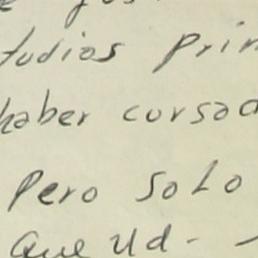 tudios prin
haber cursad
Pero solo
que Ud-